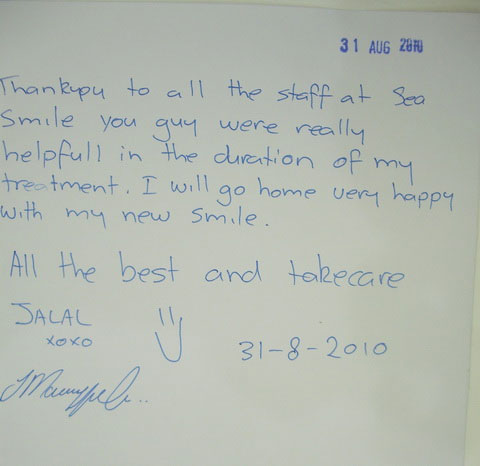 31 AUG 2010
Thankyou to all the staff at Sea
Smile you guy were really
helpfull in the duration of my
treatment. I will go home very happy
with my new smile.
All the best and takecare
JALAL
xoxo
31-8-2010